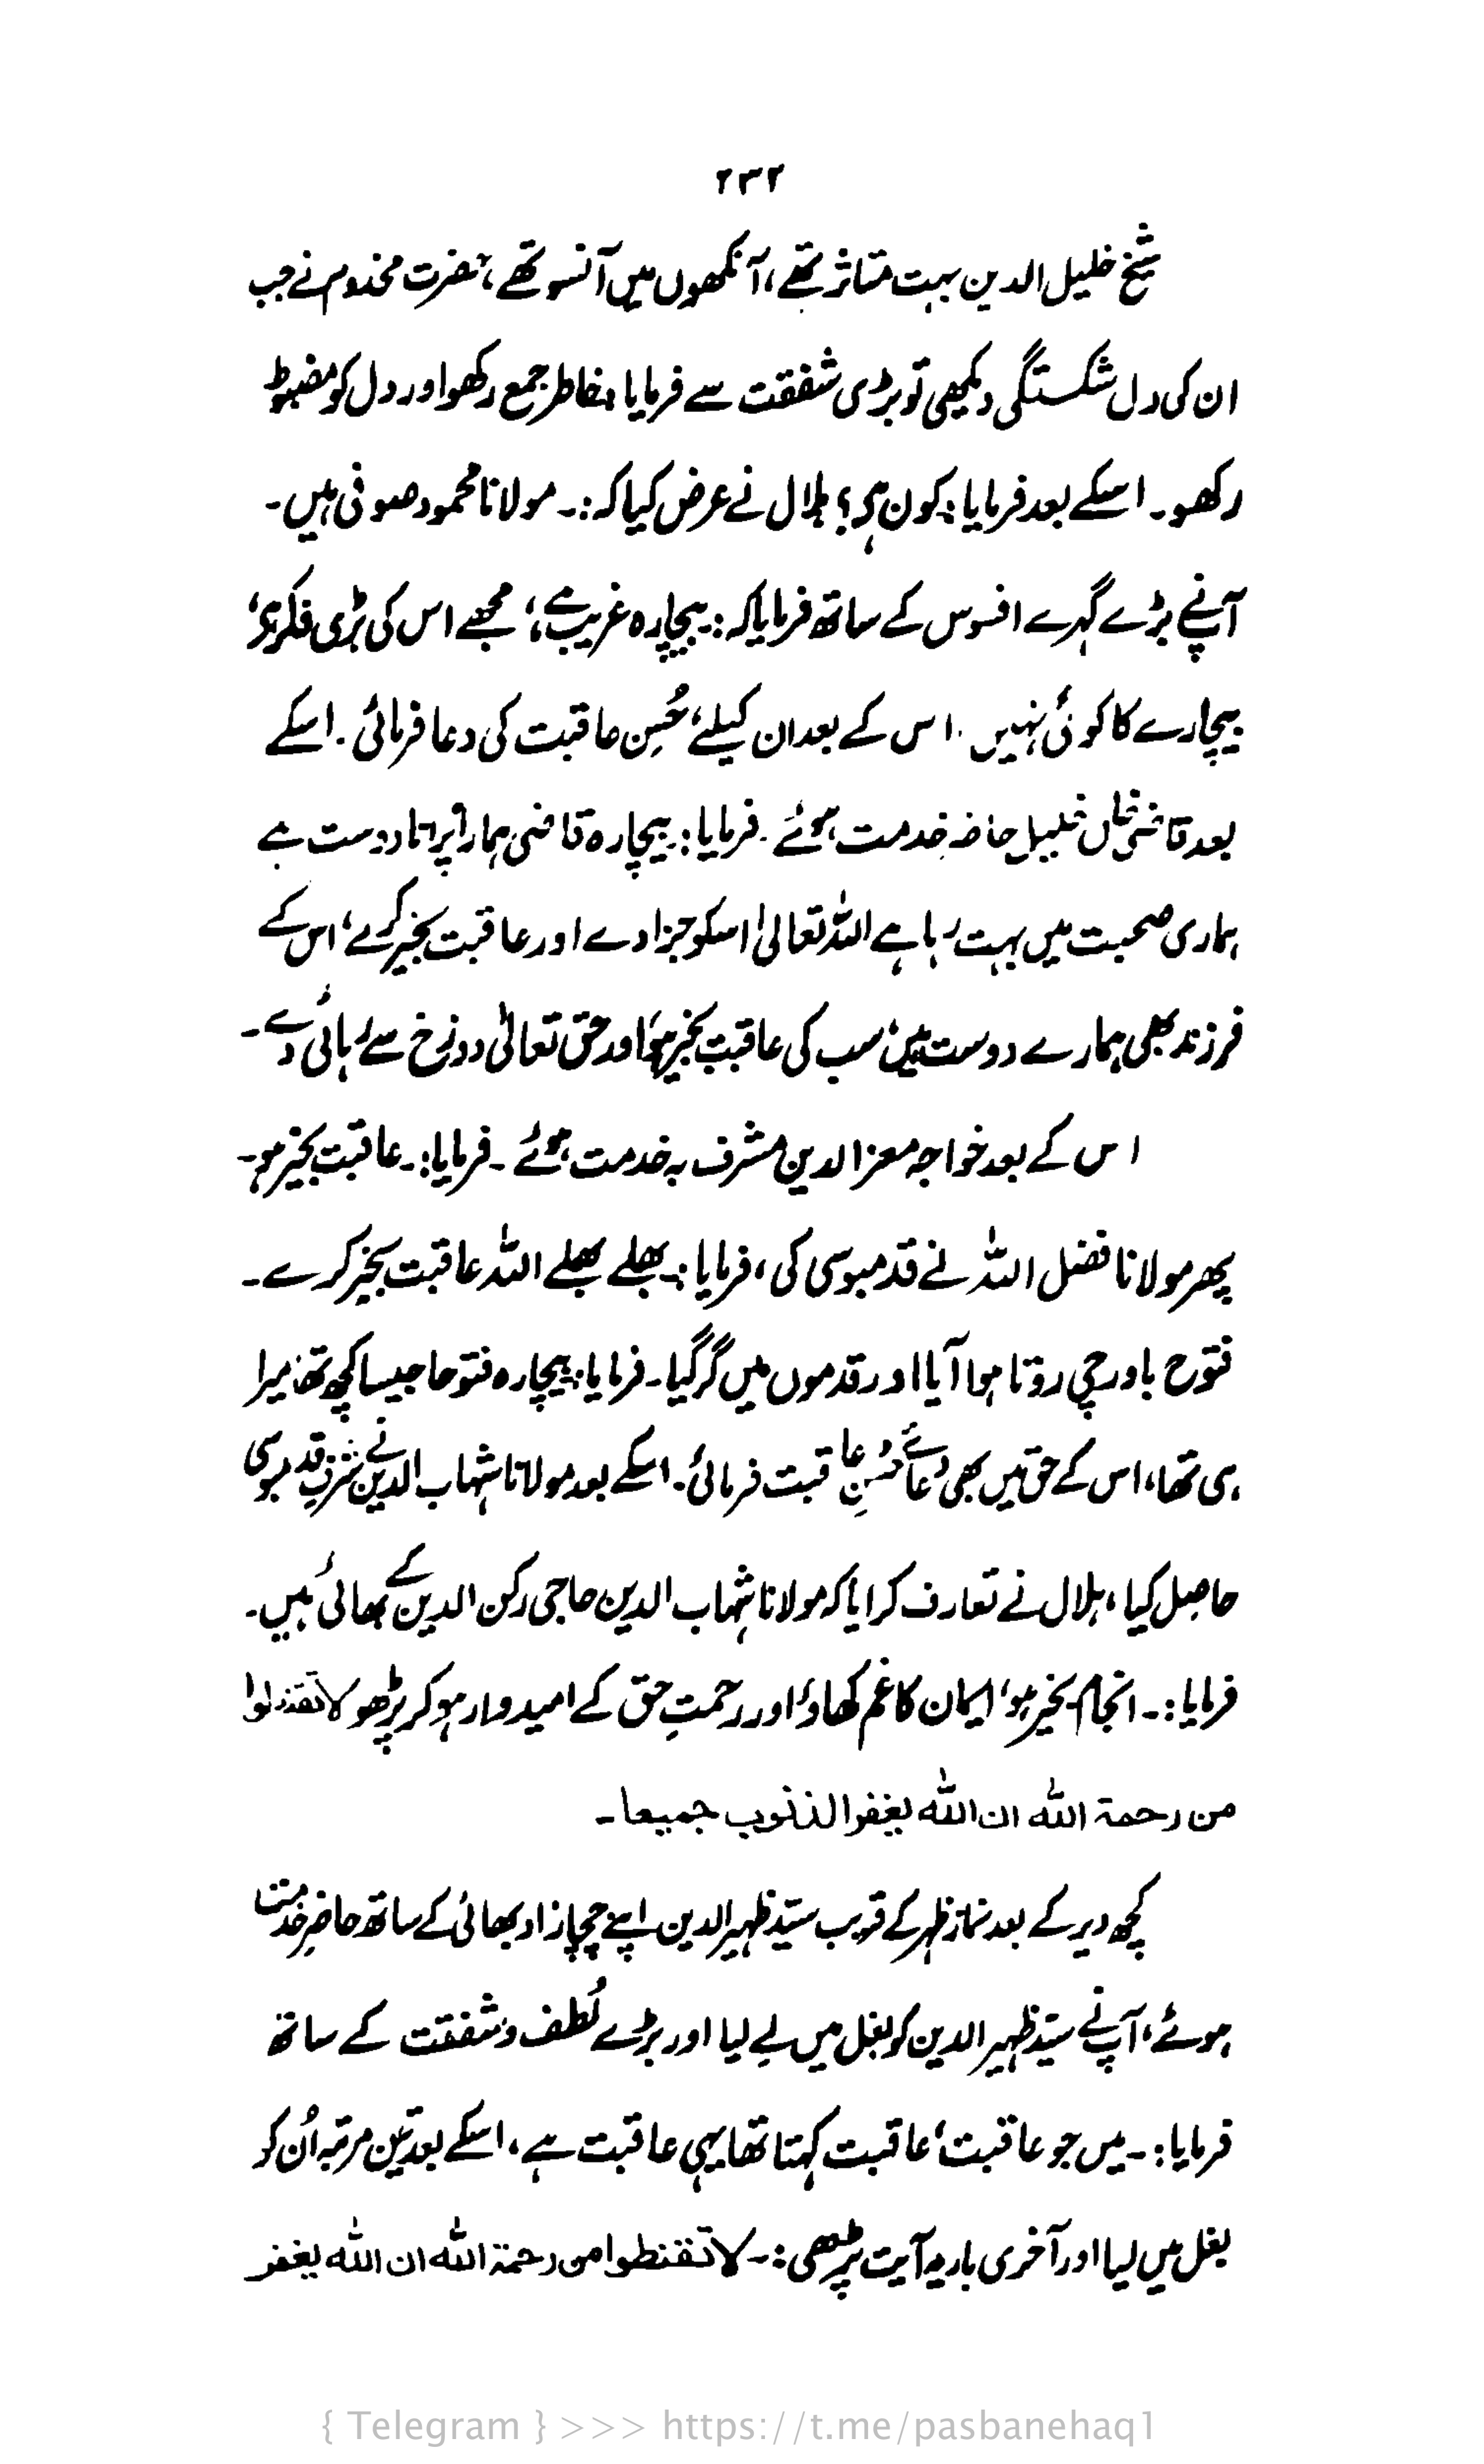 ۲۳۲
شیخ خلیل الدین بہت متاثر تھے، آنکھوں میں آنسو تھے، حضرت مخدوم نے جب
ان کی دل شکستگی دیکھی تو بڑی شفقت سے فرمایا، خاطر جمع رکھو اور دل کو مضبوط
رکھو۔ اسکے بعد فرمایا: کون ہے؟ ہلال نے عرض کیا کہ:۔ مولانا محمود صوفی ہیں۔
آپنے بڑے گہرے افسوس کے ساتھ فرمایا کہ:۔ بیچارہ غریب ہے، مجھے اس کی بڑی فکر ہے،
بیچارے کا کوئی نہیں۔ اس کے بعد ان کیلئے حُسنِ عاقبت کی دعا فرمائی۔ اسکے
بعد قاضی خاں خلیل حاضرِ خدمت ہوئے۔ فرمایا:۔ بیچارہ قاضی ہمارا پرانا دوست ہے
ہماری صحبت میں بہت رہا ہے اللہ تعالیٰ اسکو جزا دے اور عاقبت بخیر کرے، اس کے
فرزند بھی ہمارے دوست ہیں، سب کی عاقبت بخیر ہو، اور حق تعالیٰ دوزخ سے رہائی دے۔
اس کے بعد خواجہ معز الدین مشرف بہ خدمت ہوئے۔ فرمایا:۔ عاقبت بخیر ہو۔
پھر مولانا فضل اللہ نے قدمبوسی کی، فرمایا:۔ بھلے بھلے اللہ عاقبت بخیر کرے۔
فتوح باورچی روتا ہوا آیا اور قدموں میں گر گیا۔ فرمایا:۔ بیچارہ فتوحا جیسا کچھ تھا، میرا
ہی تھا، اس کے حق میں بھی دعائے حُسنِ عاقبت فرمائی۔ اسکے بعد مولانا شہاب الدین نے شرفِ قدمبوسی
حاصل کیا، ہلال نے تعارف کرایا کہ مولانا شہاب الدین حاجی رکن الدین کے بھائی ہیں۔
فرمایا:۔ انجام بخیر ہو، ایمان کا غم کھاؤ اور رحمتِ حق کے امیدوار ہو کر پڑھو لا تقنطوا
من رحمة الله ان الله يغفر الذنوب جميعا۔
کچھ دیر کے بعد نماز ظہر کے قریب سیّد ظہیر الدین اپنے چچا زاد بھائی کے ساتھ حاضرِ خدمت
ہوئے، آپ نے سیّد ظہیر الدین کو بغل میں لے لیا اور بڑے لُطف و شفقت کے ساتھ
فرمایا:۔ میں جو عاقبت، عاقبت کہتا تھا یہی عاقبت ہے، اسکے بعد تین مرتبہ اُن کو
بغل میں لیا اور آخری بار یہ آیت پڑھی:۔ لا تقنطوا من رحمة الله ان الله يغفر
{ Telegram } >>> https://t.me/pasbanehaq1